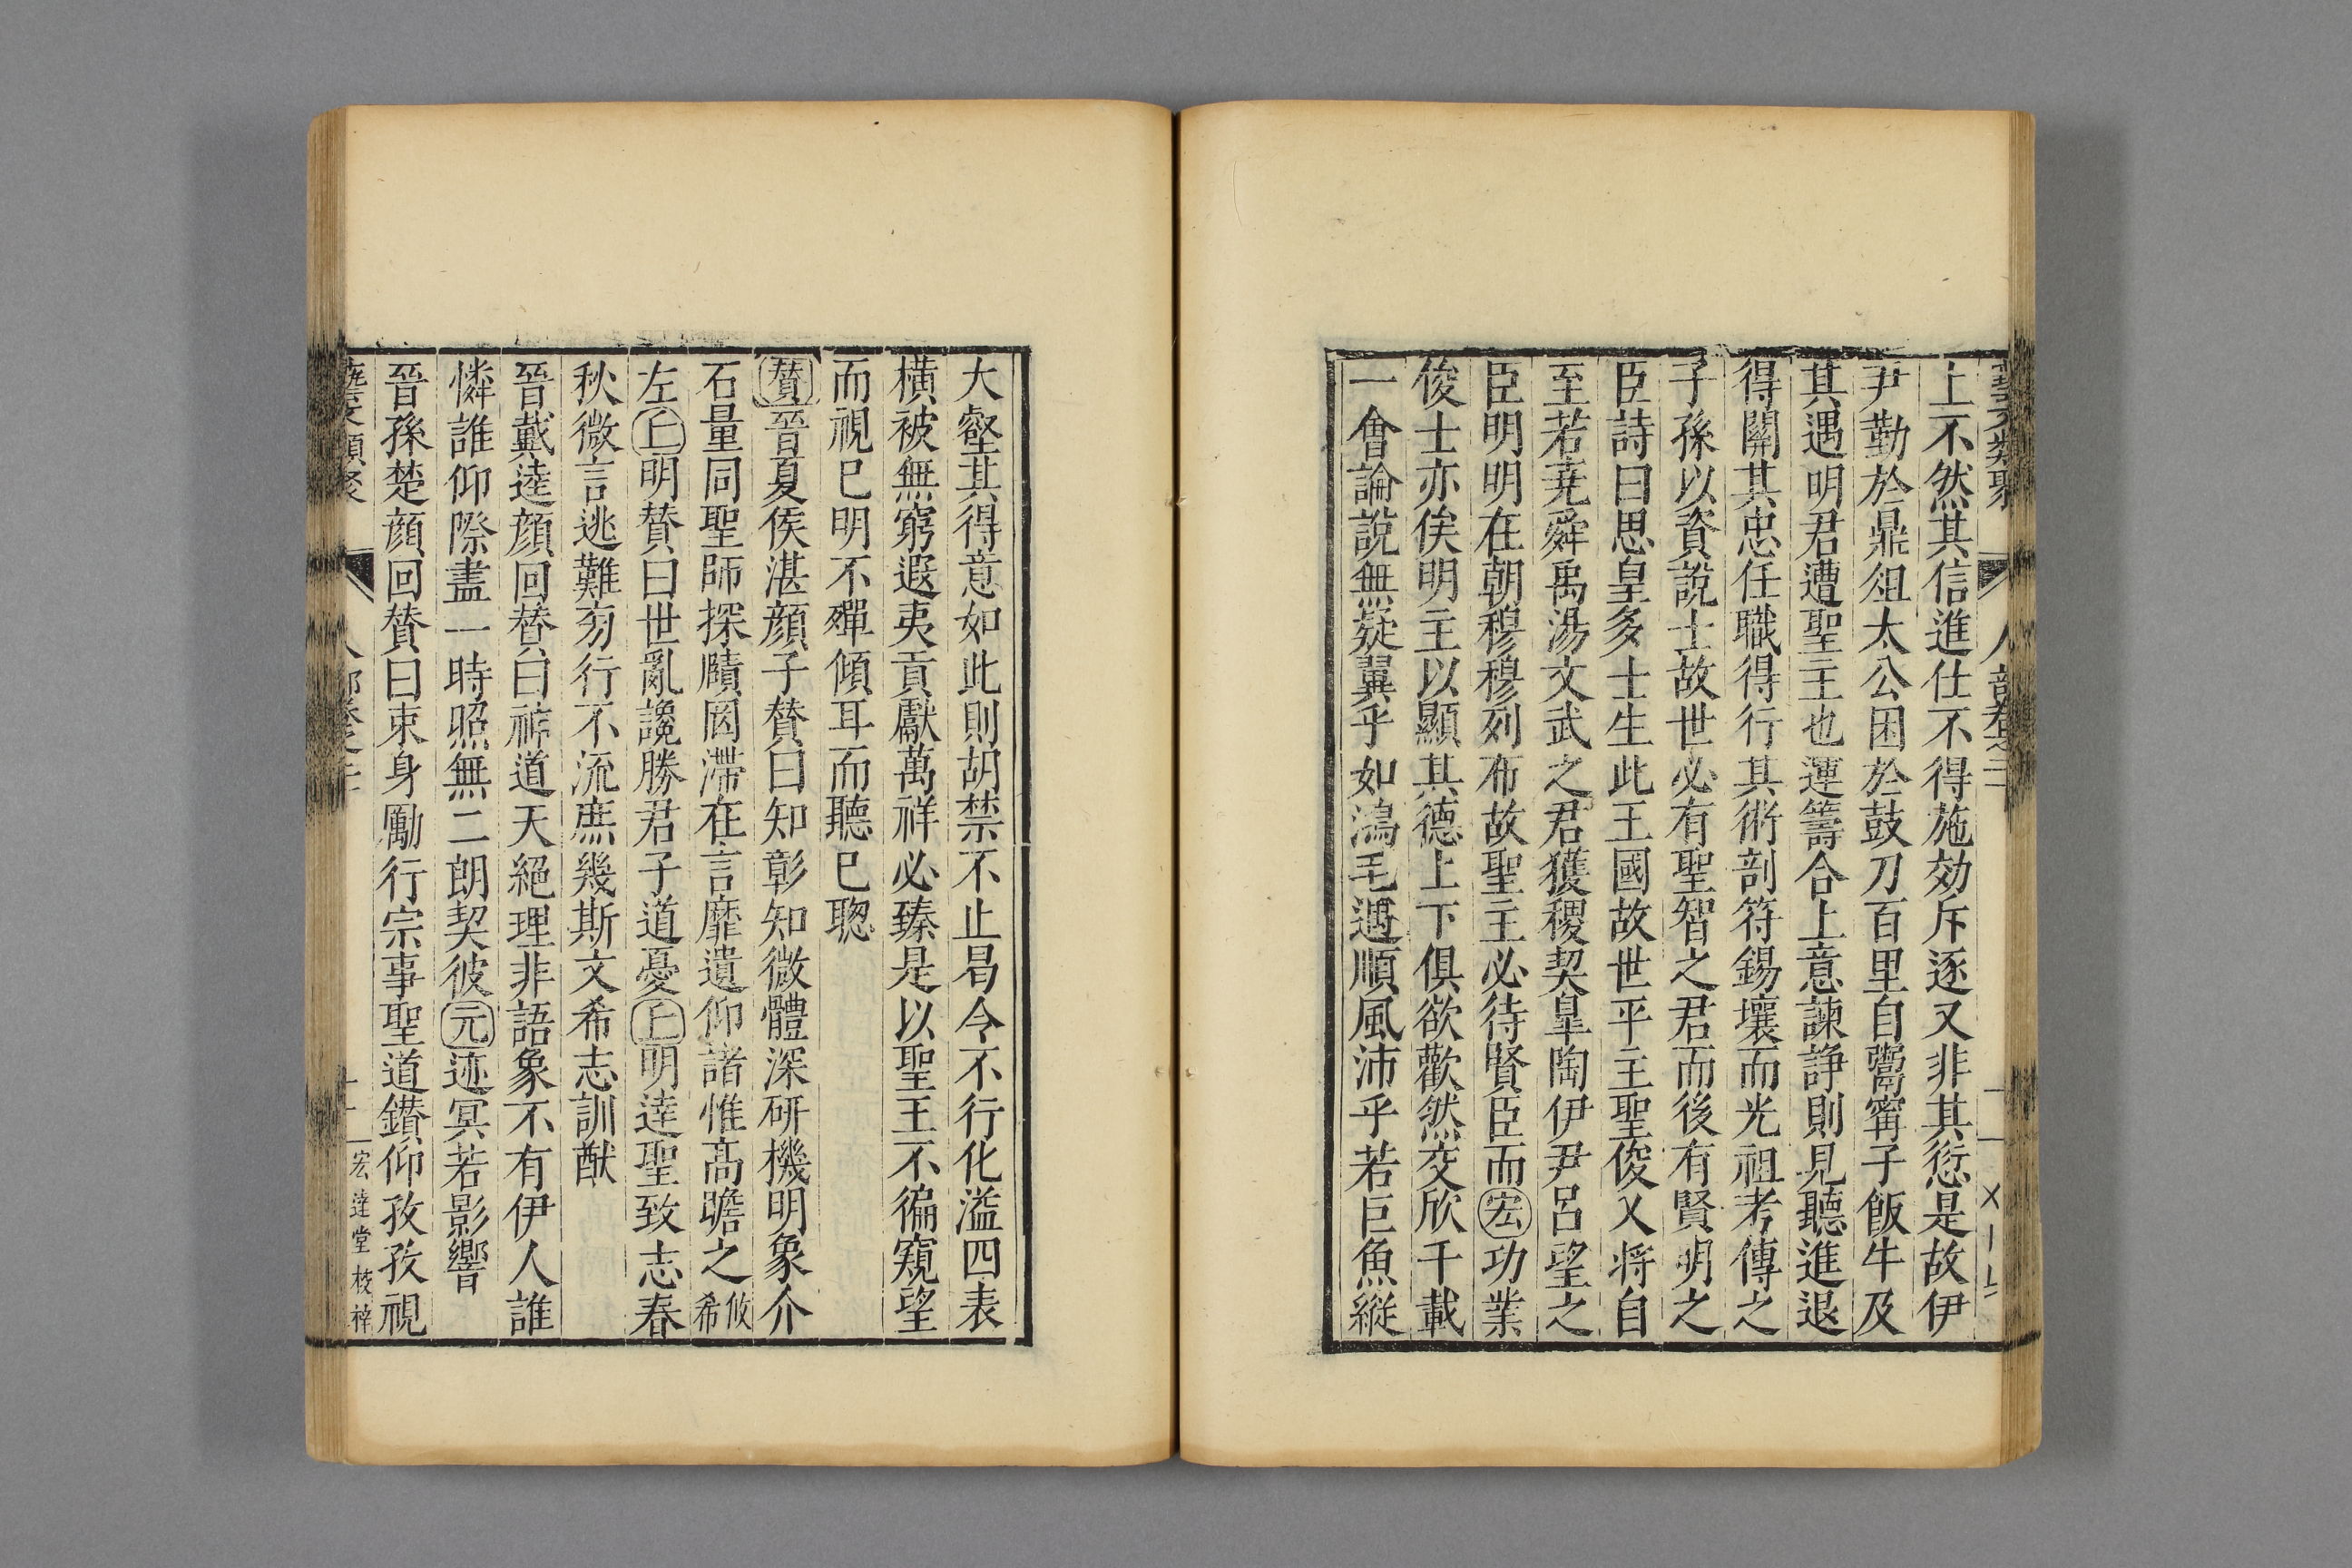 上不然其信進仕不得施効斥逐又非其愆是故伊
尹勤於鼎俎太公困於鼓刀百里自鬻甯子飯牛及
其遇明君遭聖主也運籌合上意諫諍則見聽進退
得關其忠任職得行其術剖符錫壤而光祖考傳之
子孫以資說士故世必有聖智之君而後有賢明之
臣詩曰思皇多士生此王國故世平主聖俊乂将自
至若堯舜禹湯文武之君獲稷契皐陶伊尹呂望之
臣明明在朝穆穆列布故聖主必待賢臣而宏功業
俊士亦俟明主以顯其德上下俱欲歡然交欣千載
一會論說無疑翼乎如鴻毛遇順風沛乎若巨魚縱
大壑其得意如此則胡禁不止曷令不行化溢四表
橫被無窮遐夷貢獻萬祥必臻是以聖王不徧窺望
而視已明不殫傾耳而聽已聰
贊晉夏侯湛顔子贊曰知彰知微體深研機明象介
石量同聖師探賾罔滯在言靡遺仰諸惟髙瞻之攸希
左上明贊曰世亂讒勝君子道憂上明達聖致志春
秋微言逃難旁行不流庶幾斯文希志訓猷
晉戴逵顔回贊曰神道天絕理非語象不有伊人誰
憐誰仰際盡一時照無二朗契彼元迹冥若影響
晉孫楚顔回贊曰束身勵行宗事聖道鑚仰孜孜視
宏達堂校梓